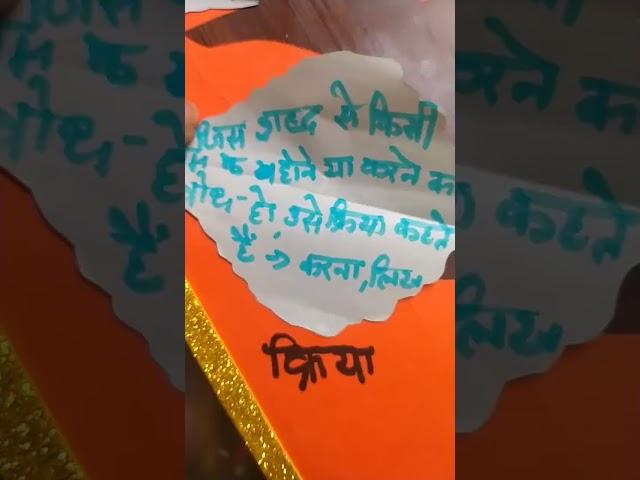 जिस शब्द से किसी
होने या करने का
बोध-हो उसे क्रिया कहते
हैं → करना, लिख
क्रिया